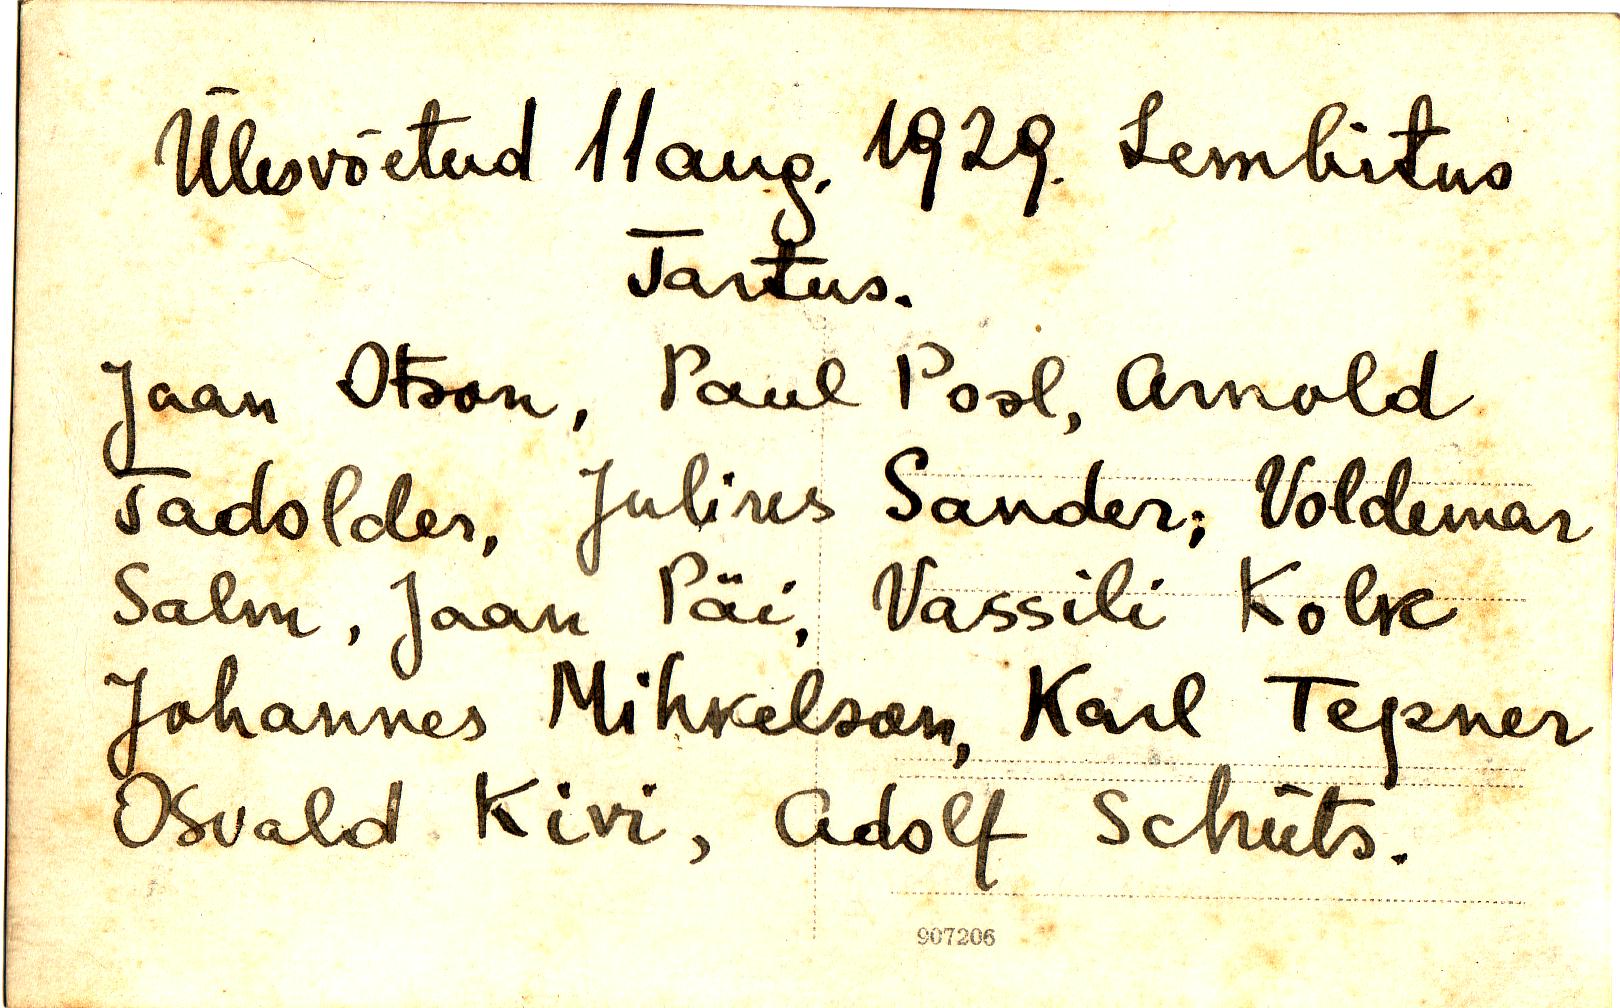 Ülesvõetud 11 aug. 1929. Lembitus
Tartus.
Jaan Otson, Paul Posl, Arnold
Tadolder, Julius Sander; Voldemar
Salm, Jaan Päi, Vassili Kolk
Johannes Mihkelson, Karl Tepner
Osvald Kivi, Adolf Schüts.
907206